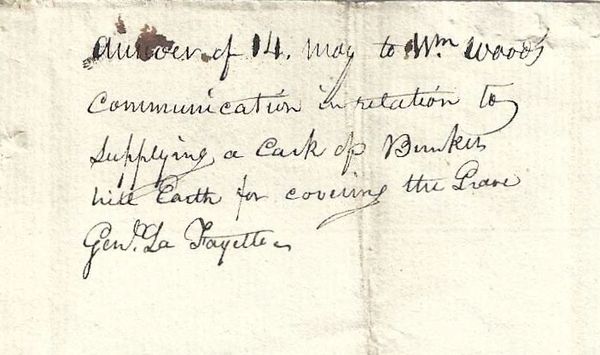 answer of 14. may to Wm Woods
Communication in relation to
Supplying a Cask of Bunker
hill Earth for covering the Grave
Genl. La Fayette